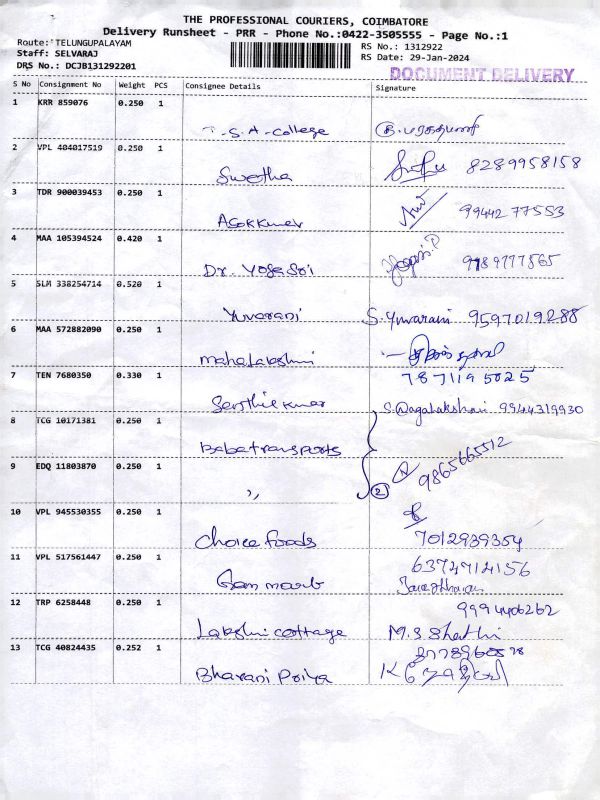 THE PROFESSIONAL COURIERS, COIMBATORE
Delivery Runsheet - PRR - Phone No.:0422-3505555 - Page No.:1
Route: TELUNGUPALAYAM
Staff: SELVARAJ
DRS No.: DCJB131292201
RS No.: 1312922
RS Date: 29-Jan-2024
DOCUMENT DELIVERY
S No Consignment No Weight PCS Consignee Details Signature
1 KRR 859076 0.250 1
S.A-College
2 VPL 404017519 0.250 1
Swetha 8289958158
3 TDR 900039453 0.250 1
Asokkumar 99442 77553
4 MAA 105394524 0.420 1
Dr. Yoga Sri 9789777565
5 SLM 338254714 0.520 1
Yuvarani S. Yuvarani 9597019288
6 MAA 572882090 0.250 1
mahalakshmi
7 TEN 7680350 0.330 1
787119 5025
Senthilkumar 9944319930
8 TCG 10171381 0.250 1
Baba transports
9865665512
9 EDQ 11803870 0.250 1
,, 2
10 VPL 945530355 0.250 1
Choice foods 7012939354
11 VPL 517561447 0.250 1
6374714156
12 TRP 6258448 0.250 1
9994406262
Lakshmi cottage M.S Shathi
13 TCG 40824435 0.252 1
Bharani Priya